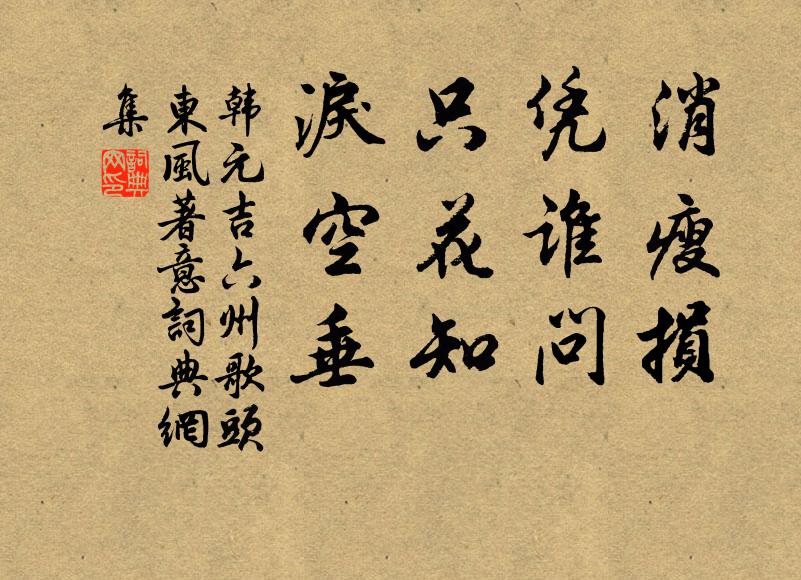 消瘦損
凭誰問
只花知
淚空垂
韩元吉六州歌頭
東風著意詞典網
集
詞典
网印